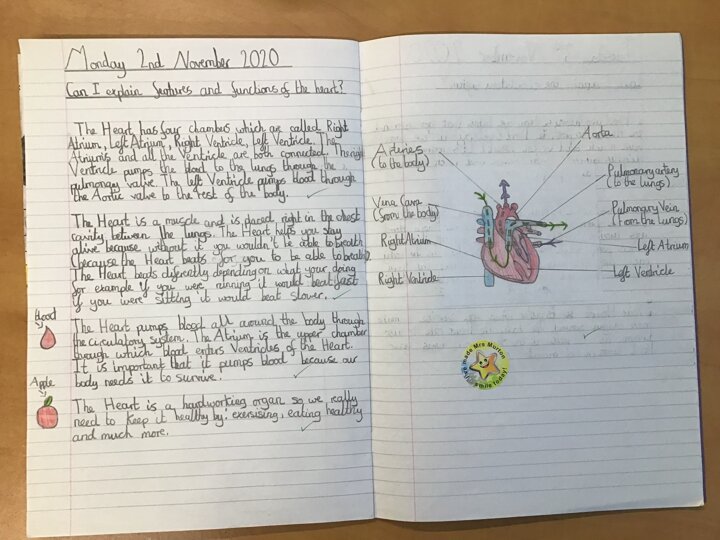 Monday 2nd November 2020
Can I explain features and functions of the heart?
The Heart has four chambers which are called Right
Atrium, Left Atrium, Right Ventricle, Left Ventricle. The
Atriums and all the Ventricle are both connected. The right
Ventricle pumps the blood to the lungs through the
pulmonary valve. The left Ventricle pumps blood through
the Aortic valve to the rest of the body.
The Heart is a muscle and is placed right in the chest
cavity between the lungs. The Heart helps you stay
alive because without it you wouldn't be able to breath
because the Heart beats for you to be able to breath.
The Heart beats diferently depending on what your doing
for example if you were running it would beat fast
if you were sitting it would beat slower.
Blood
The Heart pumps blood all around the body through
the circulatory system. The Atrium is the upper chamber
through which blood enters Ventricles of the Heart.
It is important that it pumps blood because our
body needs it to survive.
Aple
The Heart is a hardworking organ so we really
need to keep it healthy by: exersising, eating healthy
and much more.
Aorta
(to the body)
Pulmonary artery
(to the lungs)
Vena Cava
(from the body)
Pulmonary Vein
(from the lungs)
Right Atrium
Left Atrium
Right Ventricle
Left Ventricle
made Mrs Morton
smile today!